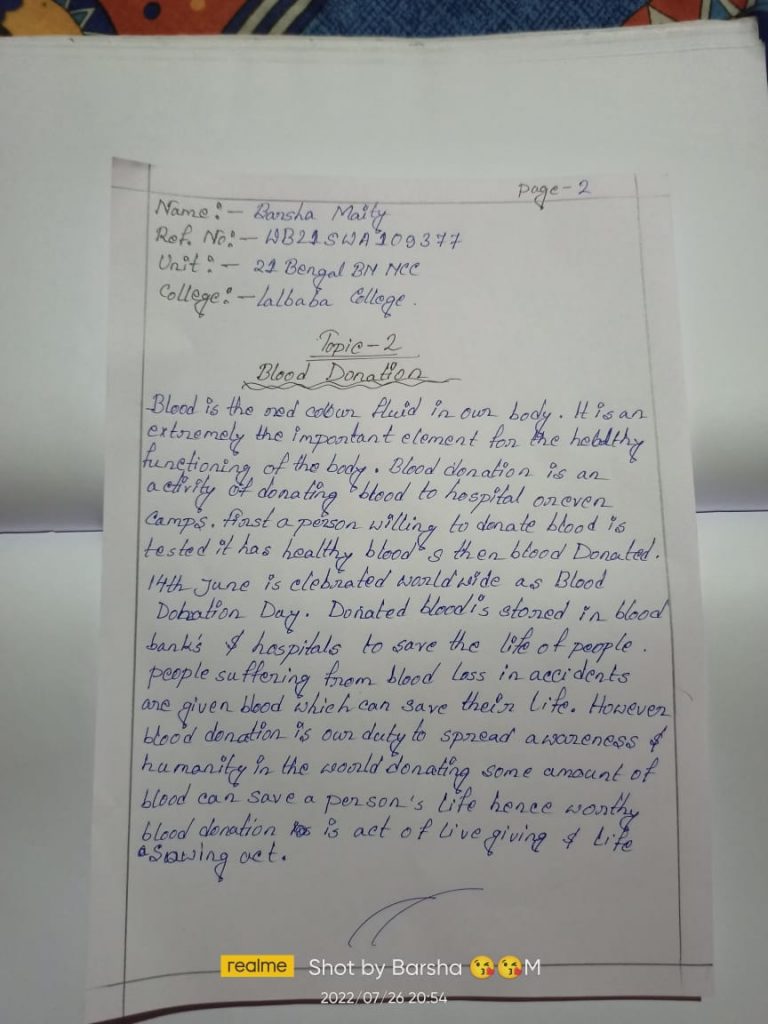 Page-2
Name:- Barsha Maity
Ref. No:- WB21SWA109377
Unit:- 21 Bengal BN NCC
College:- Lalbaba College.
Topic-2
Blood Donation
Blood is the red colour fluid in our body. It is an
extremely the important element for the healthy
functioning of the body. Blood donation is an
activity of donating blood to hospital or even
camps. First a person willing to donate blood is
tested it has healthy blood's then blood Donated.
14th June is clebrated worldwide as Blood
Donation Day. Donated blood is stored in blood
bank's & hospitals to save the life of people.
people suffering from blood loss in accidents
are given blood which can save their life. However
blood donation is our duty to spread awareness &
humanity in the woorld donating some amount of
blood can save a person's life hence worthy
blood donation is act of live giving & life
Sawing act.
realme Shot by Barsha 😘😘M
2022/07/26 20:54